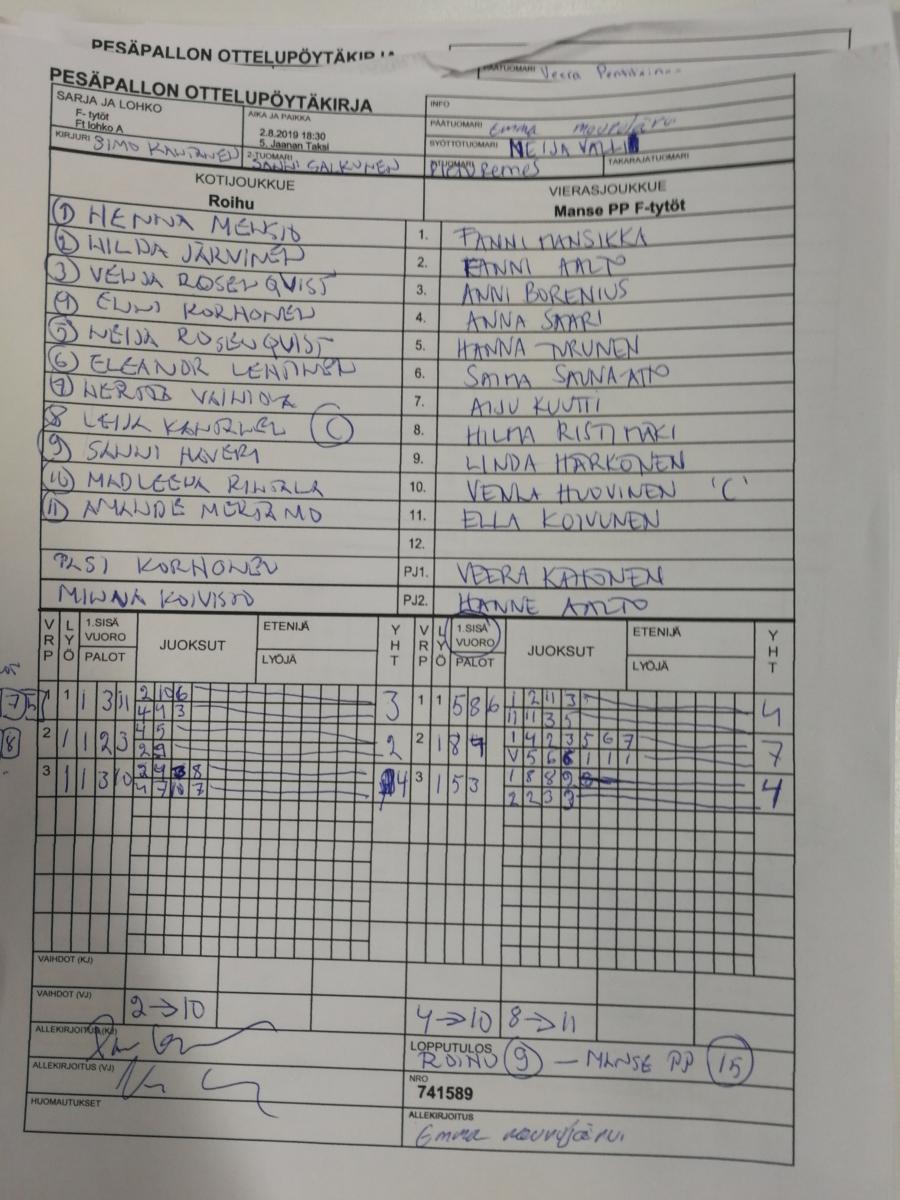 PESÄPALLON OTTELUPÖYTÄKIRJA
PÄÄTUOMARI Veera
PESÄPALLON OTTELUPÖYTÄKIRJA
SARJA JA LOHKO
F- tytöt
Ft lohko A
AIKA JA PAIKKA
2.8.2019 18:30
5. Jaanan Taksi
INFO
PÄÄTUOMARI Emma
SYÖTTÖTUOMARI NEIJA VALLI
KIRJURI SIMO KANTANEN
2-TUOMARI SANNI SALKUNEN
Remes
TAKARAJATUOMARI
KOTIJOUKKUE
Roihu
VIERASJOUKKUE
Manse PP F-tytöt
1 HENNA 1. FANNI MANSIKKA
2 HILDA JÄRVINEN 2. FANNI AALTO
3 VENJA ROSENQVIST 3. ANNI BORENIUS
4 ELINI KORHONEN 4. ANNA SAARI
5 NEIJA ROSENQVIST 5. HANNA TURUNEN
6 ELEANOR LEHTINEN 6. SAIMA SAUNA-AHO
7 VAINIOLA 7. AIJU KUUTTI
8 LEIJA KANTANEN C 8. HILMA RISTIMÄKI
9 SANNI HAVERI 9. LINDA HÄRKÖNEN
10 MADLEENA RINTALA 10. VENLA HUOVINEN 'C'
11 AMANDE MERTAMO 11. ELLA KOIVUNEN
12.
PASI KORHONEN PJ1. VEERA KAHONEN
MINNA KOIVISTO PJ2. HANNE AALTO
VRP LYÖ 1.SISÄ VUORO PALOT JUOKSUT ETENIJÄ LYÖJÄ YHT VRP LYÖ 1.SISÄ VUORO PALOT JUOKSUT ETENIJÄ LYÖJÄ YHT
1 1 1 3 11 2 10 6 3 1 1 5 8 6 1 2 11 3 4
4 4 3 11 11 3 5
2 1 1 2 3 4 5 2 2 1 8 1 4 2 3 5 6 7 7
2 9 V 5 6 6 1 1 1
3 1 1 3 10 2 9 8 4 3 1 5 3 1 8 8 9 4
4 7 10 7 2 2 3 3
VAIHDOT (KJ)
VAIHDOT (VJ) 2→10 4→10 8→11
ALLEKIRJOITUS (KJ)
LOPPUTULOS
ROIHU 9 — MANSE PP 15
ALLEKIRJOITUS (VJ)
NRO
741589
HUOMAUTUKSET
ALLEKIRJOITUS
Emma